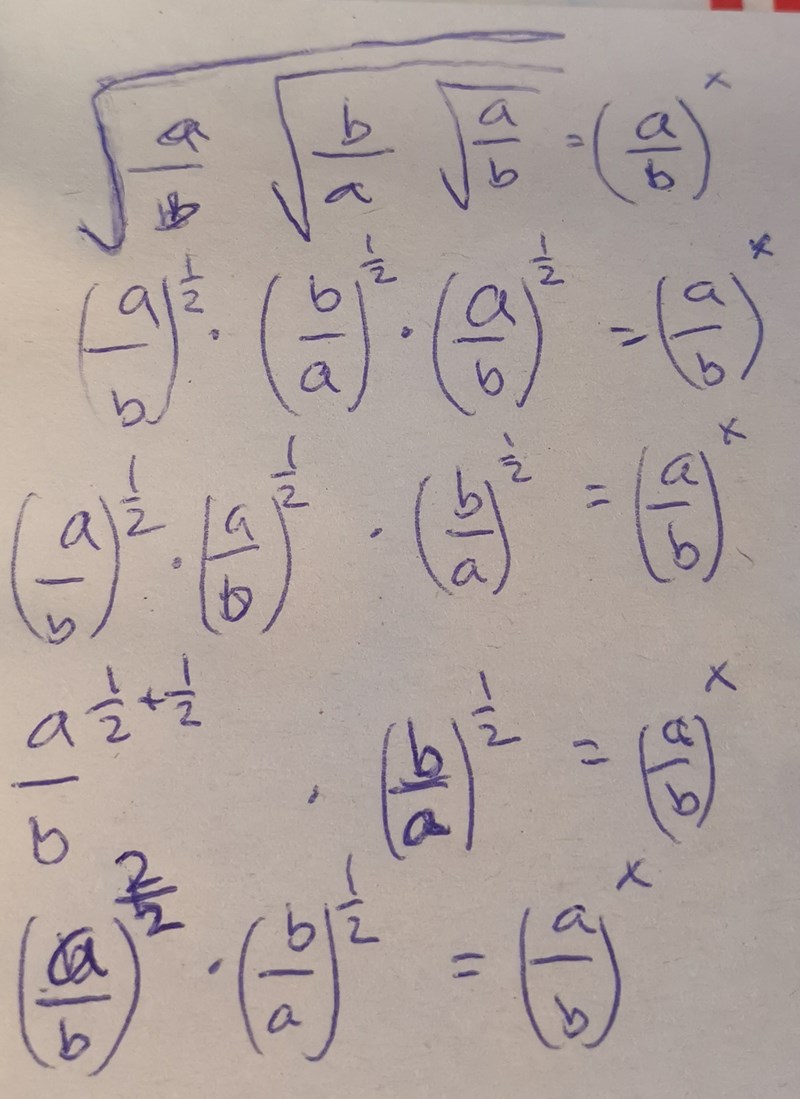 √(a/b √(b/a √(a/b))) = (a/b)^x
(a/b)^(1/2) · (b/a)^(1/2) · (a/b)^(1/2) = (a/b)^x
(a/b)^(1/2) · (a/b)^(1/2) · (b/a)^(1/2) = (a/b)^x
a^(1/2+1/2)/b · (b/a)^(1/2) = (a/b)^x
(a/b)^(2/2) · (b/a)^(1/2) = (a/b)^x